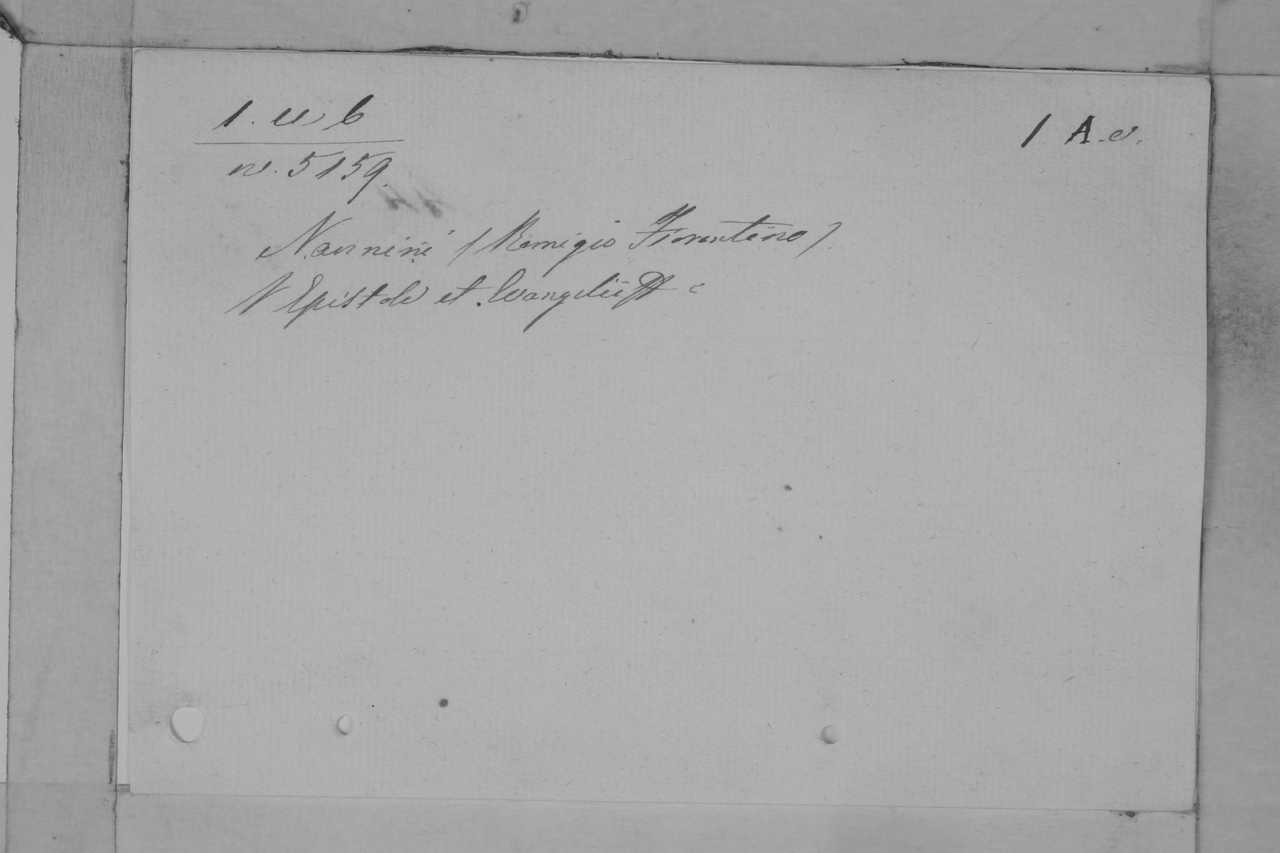 1. u b
1 A.v.
n. 5159.
Nannini (Remigio Fiorentino)
Epistole et Evangelii